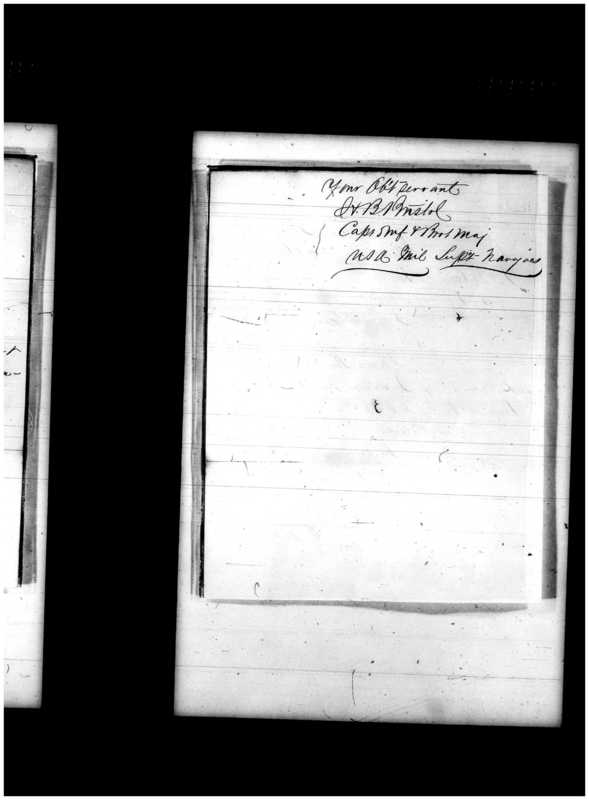 Your Obt Servant
H. B. Bristol
Capt 5 Inf & Bvt Maj
USA Mil Supt Navajoes